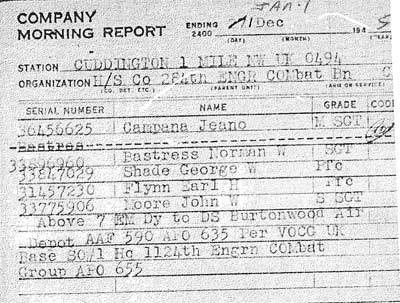 JAN-1
COMPANY
MORNING REPORT ENDING 2400 Dec 194
(DAY) (MONTH)
STATION CUDDINGTON 1 MILE NW UK 0494
ORGANIZATION H/S Co 284th ENGR COMbat Bn C
(CO. DET. ETC.) (PARENT UNIT) (ARM OR SERVICE)
SERIAL NUMBER NAME GRADE CODE
36456625 Campana Jeano M SGT
33896960 Bastress Norman W SGT
33847029 Shade George W Pfc
31457230 Flynn Earl H Pfc
33775906 Moore John W S SGT
Above 7 EM Dy to DS Burtonwood Air
Depot AAF 590 APO 635 Per VOCG UK
Base SO/1 Hq 1124th Engrn COMbat
Group APO 655